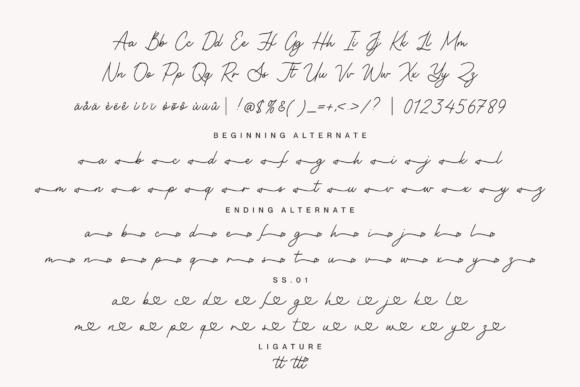 Aa Bb Cc Dd Ee Ff Gg Hh Ii Jj Kk Ll Mm
Nn Oo Pp Qq Rr Ss Tt Uu Vv Ww Xx Yy Zz
!@$%&( )_=+,<.>/? | 0123456789
BEGINNING ALTERNATE
a b c d e f g h i j k l
m n o p q r s t u v w x y z
ENDING ALTERNATE
a b c d e f g h i j k l
m n o p q r s t u v w x y z
SS.01
a b c d e f g h i j k l
m n o p q r s t u v w x y z
LIGATURE
tt tti